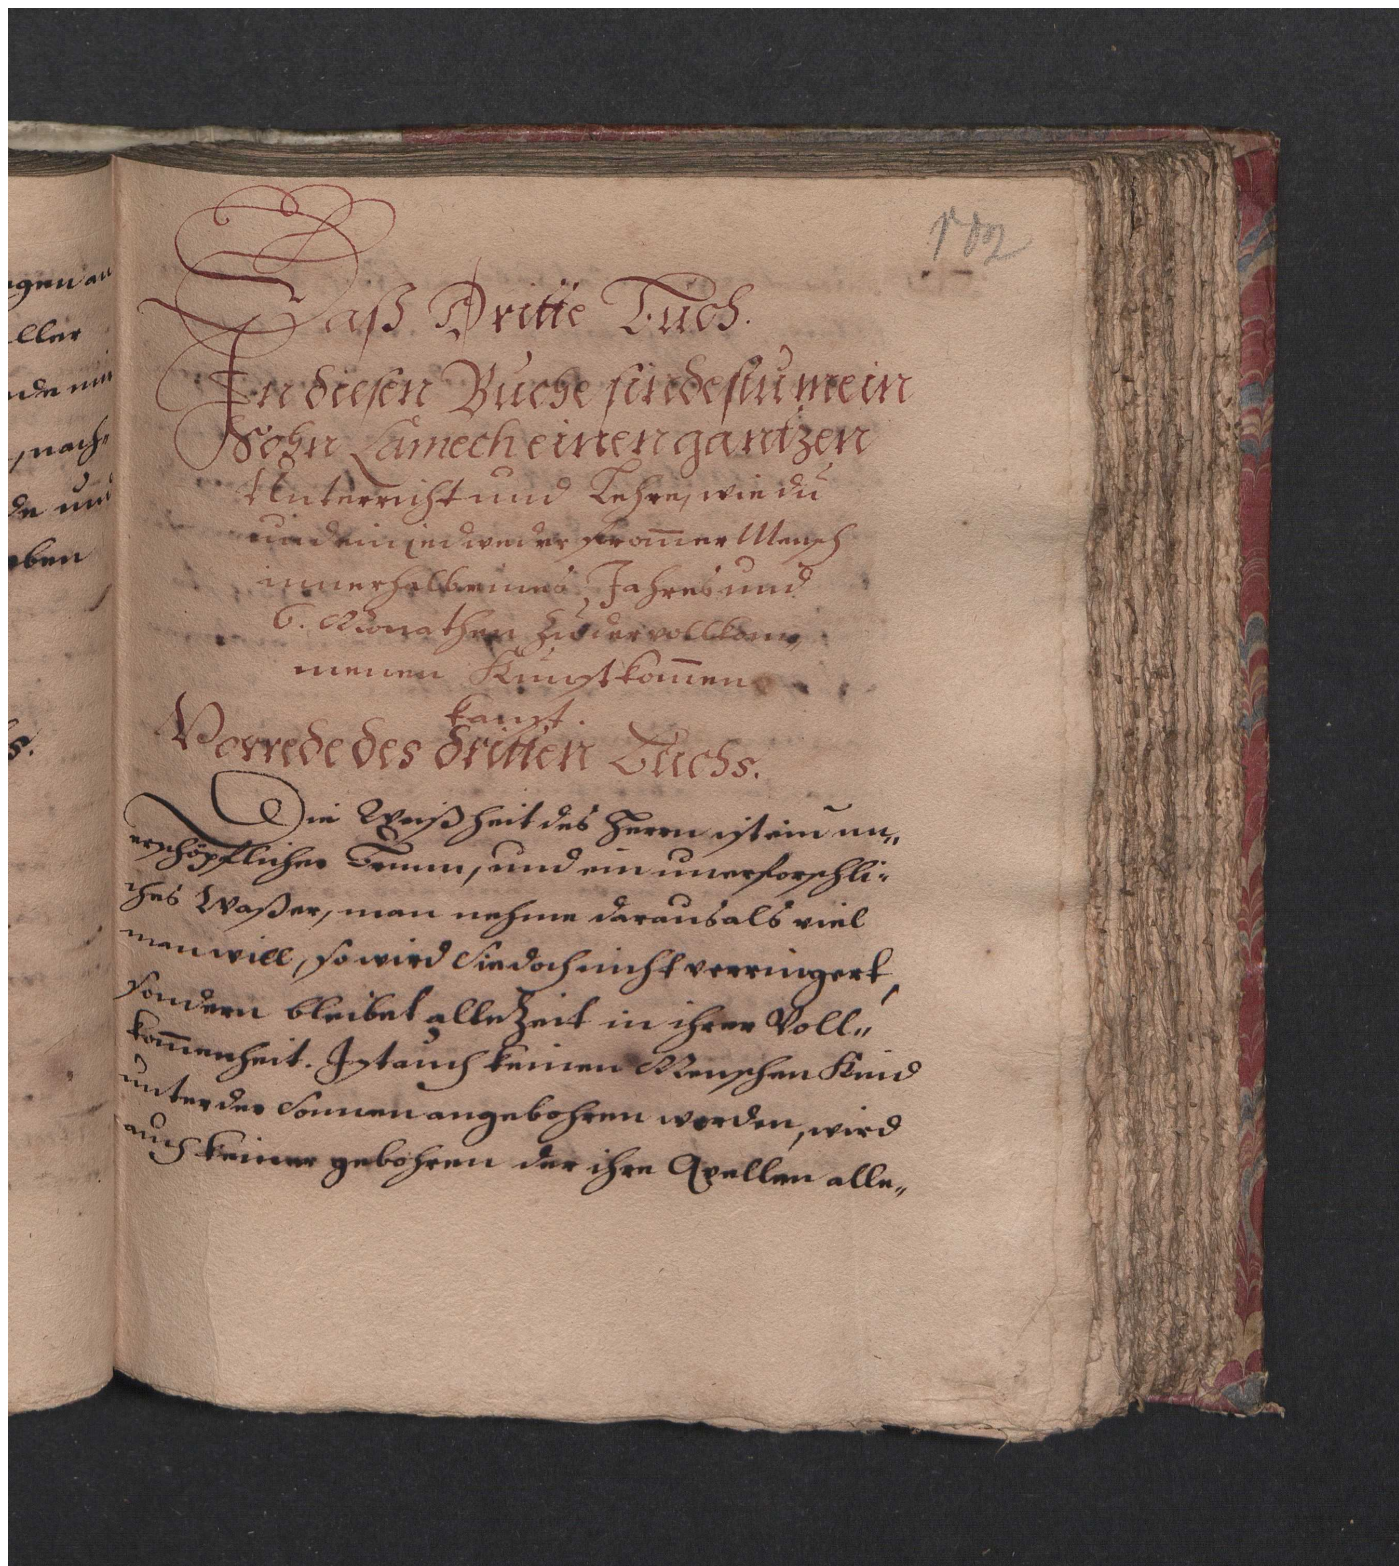 gen an
ller
nach
de und
ben
s.
102
Daß Dritte Buch.
In diesen Buche findestu mein
Sohn Lamech einen gantzen
Unterricht und Lehre, wie du
und ein jedweder from̅er Mensch
innerhalb eines Jahres und
6. Monathen zu der vollkom„
menen Kunst kom̅en
kanst.
Vorrede des dritten Buchs.
Die Weißheit des Herrn ist ein un„
erschöpflicher Brunn, und ein unerforschli-
ches Waßer, man nehme daraus als viel
man will, so wird Sie doch nicht verringert,
sondern bleibet alle Zeit in ihrer Voll„
kom̅enheit. Ist auch keinen Menschen Kind
unter der Sonnen angebohren worden, wird
auch keiner gebohren der ihre Qvellen alle„